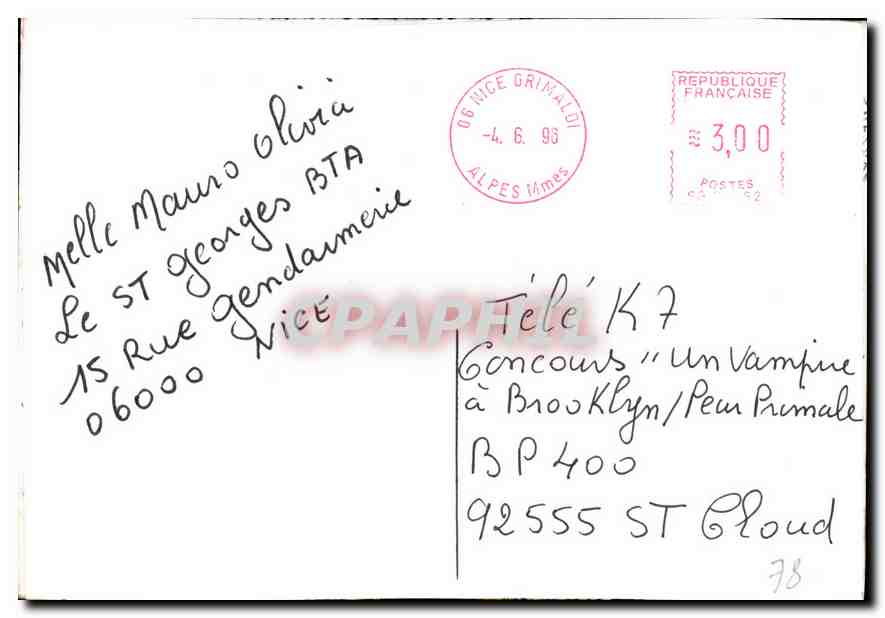 Melle Mauro Olivia
Le ST Georges BTA
15 Rue Gendarmerie
06000 NICE
06 NICE GRIMALDI
-4. 6. 96
ALPES Mmes
REPUBLIQUE
FRANÇAISE
3,00
POSTES
CPAPHIL
Télé K7
Concours "un Vampire
à Brooklyn/Peur Primale
BP 400
92555 ST Cloud
78